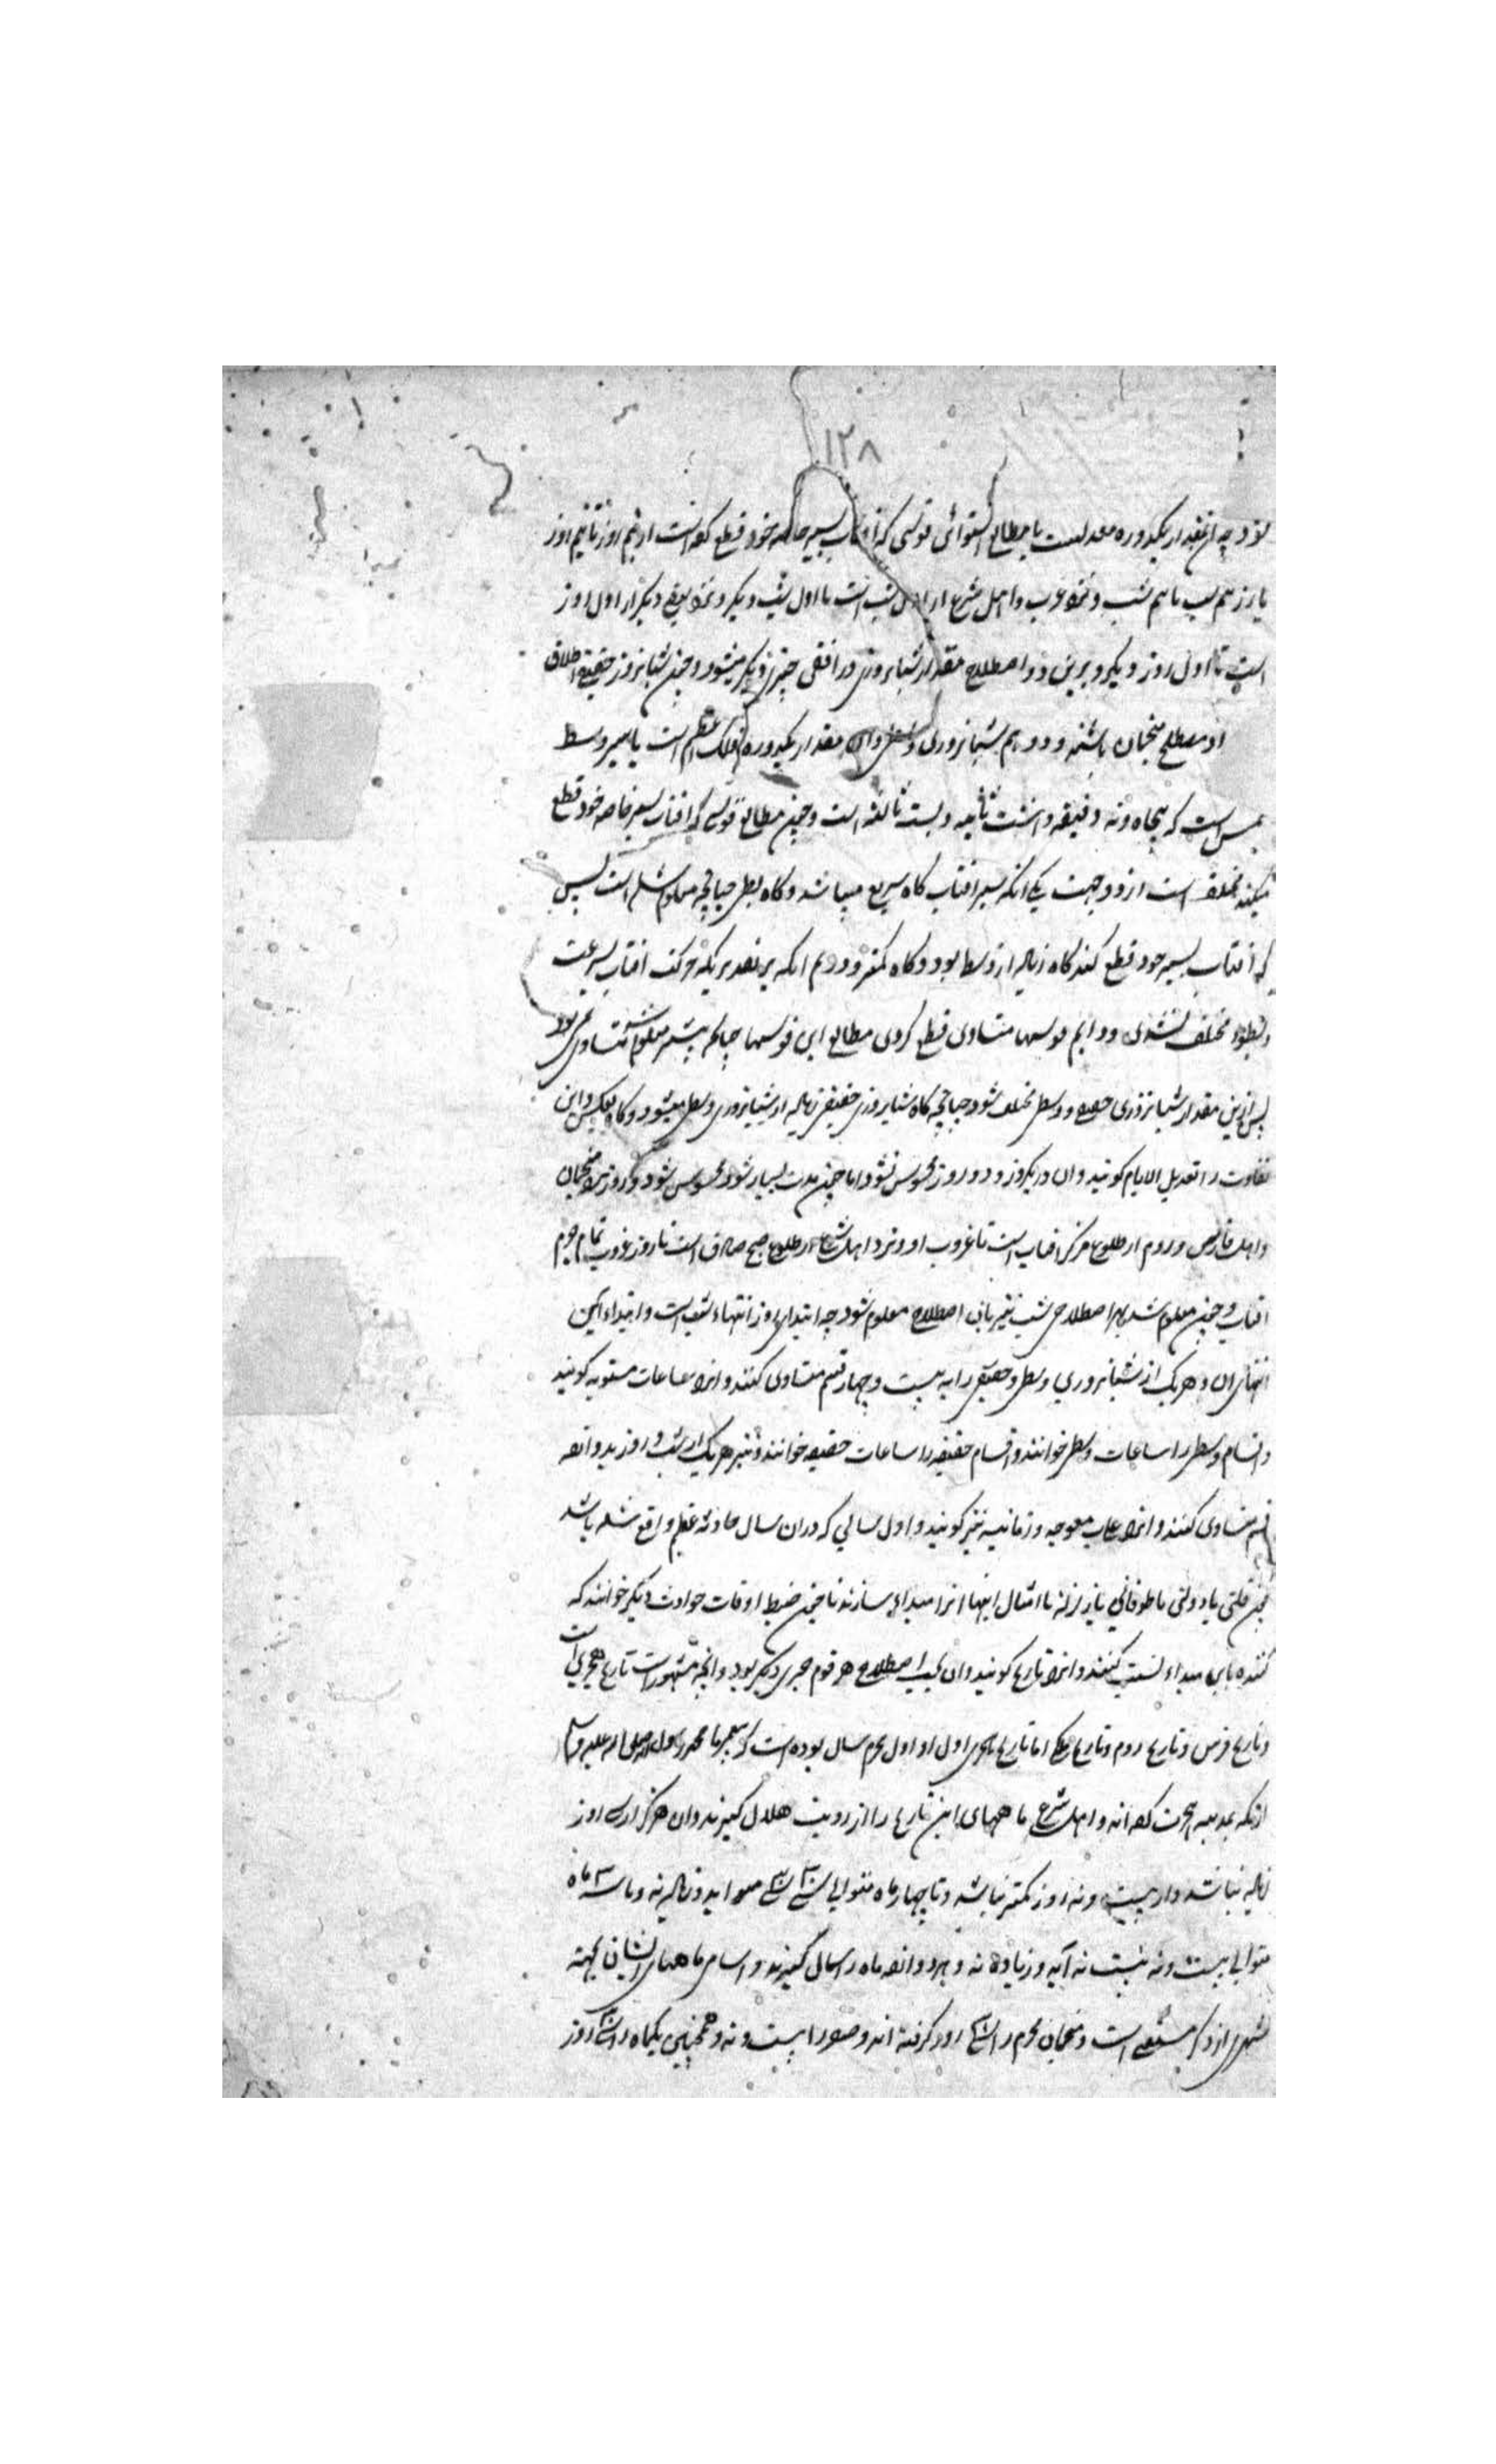 ۱۲۸
بود چه آن مقدار یکدوره معدلست با مطالع استوائی قوسی که افتاب بسیر خاصه خود قطع کرده است از نیم روز تا نیم روز
یا از نیم شب تا نیم شب و نزد عرب و اهل شرع از اول شب است تا اول شب دیگر و نزد بعضی دیگر از اول روز
است تا اول روز دیگر و برین دو اصطلاح مقدار شبانروزی در افقی چیزی دیگر میشود و چون شبانروز حقیقی اطلاق
او مصطلح منجمان باشند و دویم شبانروزی وسطی و آن مقدار یکدوره فلک اعظم است با سیر وسط
شمس است که پنجاه و نه دقیقه و هشت ثانیه و بست ثالثه است و چون مطالع قوسی که افتاب بسیر خاصه خود قطع
میکند مختلف است از دو جهت یکی انکه سیر افتاب کاه سریع میباشد و کاه بطی چنانچه معلوم شده است پس
که افتاب بسیر خود قطع کند کاه زیاده از وسط بود و کاه کمتر و دویم انکه بر تقدیریکه حرکت افتاب بسرعت
و بطوء مختلف نشدی و دایم قوسها متساوی قطع کردی مطالع این قوسها چنانکه پیشتر معلوم شد متساوی نمی بود
پس ازین مقدار شبانروزی حقیقی و وسطی مختلف شود چنانچه کاه شبانروزی حقیقی زیاده از شبانروزی وسطی میشود و کاه بعکس و این
تفاوت را تعدیل الایام کویند و آن در یکروز و دو روز محسوس نشود اما چون مدت بسیار شود محسوس شود و روز نزد منجمان
و اهل فارس و روم از طلوع مرکز افتاب است تا غروب او و نزد اهل شرع از طلوع صبح صادق است تا روز غروب تمام جرم
افتاب و چون معلوم شد بهر اصطلاحی شب نیز بآن اصطلاح معلوم شود چه ابتداء روز انتهاء شب است و ابتداء این
انتهای ان و هر یک از شبانروزی وسطی و حقیقی را به بیست و چهار قسم متساوی کنند و انرا ساعات مستویه کویند
و اقسام وسطی را ساعات وسطی خوانند و اقسام حقیقی را ساعات حقیقیه خوانند و نیز هر یک از شب و روز بدوازده
قسم متساوی کنند و انرا ساعات معوجه و زمانیه نیز کویند و اول سالی که در ان سال حادثه عظیم واقع شده باشد
چون ملتی یا دولتی یا طوفانی یا زلزله یا امثال اینها انرا مبداء سازند تا چون ضبط اوقات حوادث دیکر خوانند که
کننده باین مبداء نسبت کنند و انرا تاریخ کویند و ان بحسب اصطلاح هر قوم چیزی دیکر بود و انچه مشهورست تاریخ هجری است
و تاریخ فرس و تاریخ روم و تاریخ ملکی اما تاریخ هجری اول او اول محرم سال بوده است که پیغمبر ما محمد رسول الله صلی الله علیه وسلم
از مکه بمدینه هجرت کرده اند و اهل شرع ماههای این تاریخ را از رویت هلال کیرند و ان هرکز از سی روز
زیاده نباشد و از بیست و نه روز کمتر نباشد و تا چهار ماه متوالی سی سی می اید و زیاده نه و تا سه ماه
متوالی بیست و نه بیست نه آید و زیاده نه و بدوازده ماه را سال کیرند و اسامی ماههای ایشان بجهت
شهرت از ذکر مستغنی است و منجمان محرم را سی روز کرفته اند و صفر را بیست و نه و همچنین یکماه را سی روز